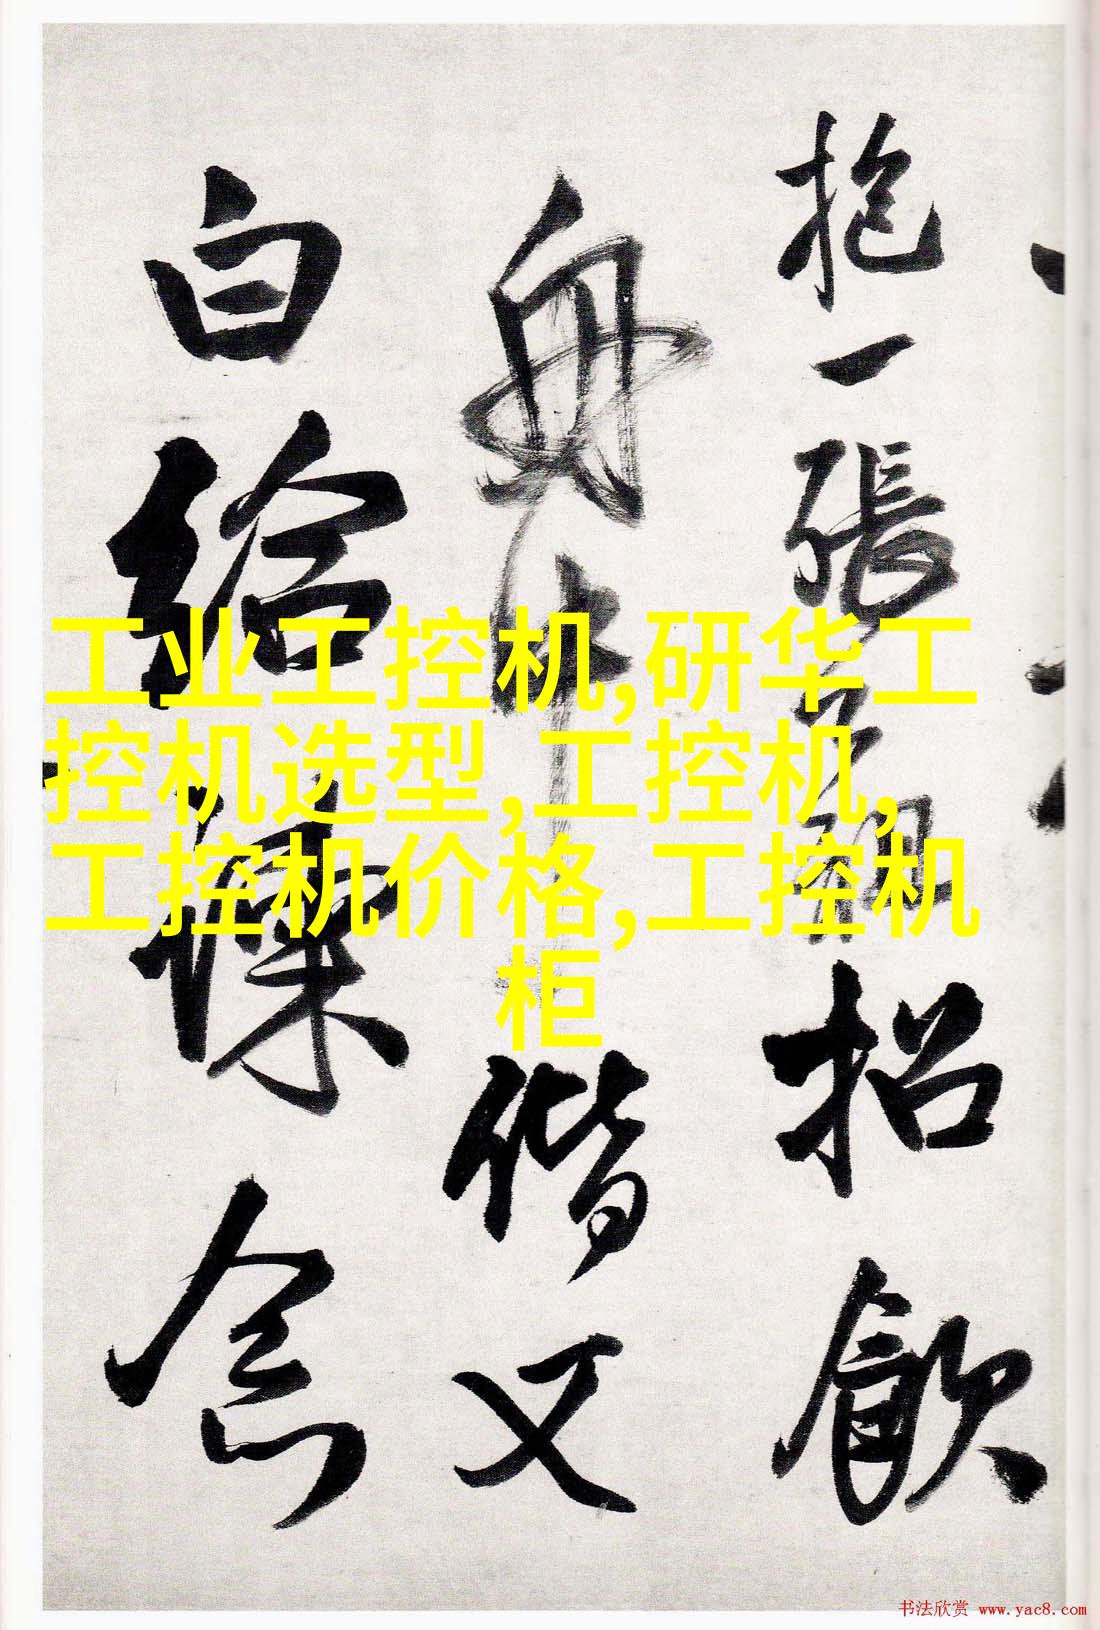 工业工控机,研华工
控机选型,工控机,
工控机价格,工控机
柜
抱一張招飲
舟中偕又
白給諫念
书法欣赏 www.yac8.com